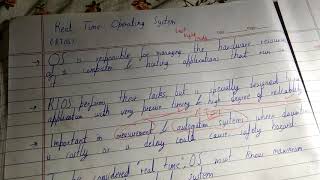 Real Time Operating System
(RTOS)
OS is responsible for managing the hardware resources
of a computer & hosting applications that run
RTOS perform these tasks, but is specially designed
application with very precise timing & high degree of reliability
Important in measurement & automation systems where
is costly or a delay could cause safety hazard
To be considered "real time", OS must know maximum
system